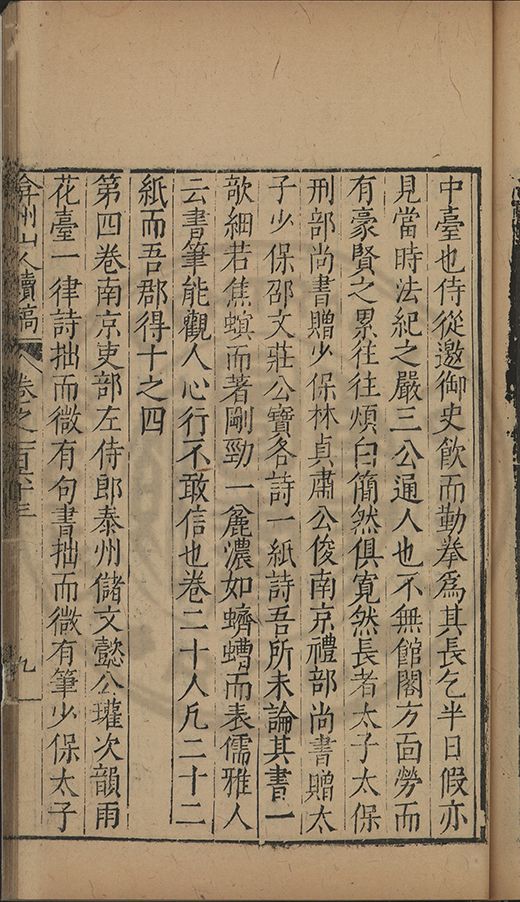 中臺也侍從邀御史飲而勤拳爲其長乞半日假亦
見當時法紀之嚴三公通人也不無館閣方面勞而
有豪賢之累往往煩臼簡然俱寬然長者太子太保
刑部尚書贈少保林貞肅公俊南京禮部尚書贈太
子少保邵文莊公寶各詩一紙詩吾所未論其書一
歆細若焦螟而著剛勁一麁濃如蠐螬而表儒雅人
云書筆能觀人心行不敢信也卷二十人凡二十二
紙而吾郡得十之四
第四卷南京吏部左侍郎泰州儲文懿公瓘次韻雨
花臺一律詩拙而微有句書拙而微有筆少保太子
弇州山人續稿 卷之一百六十三 九